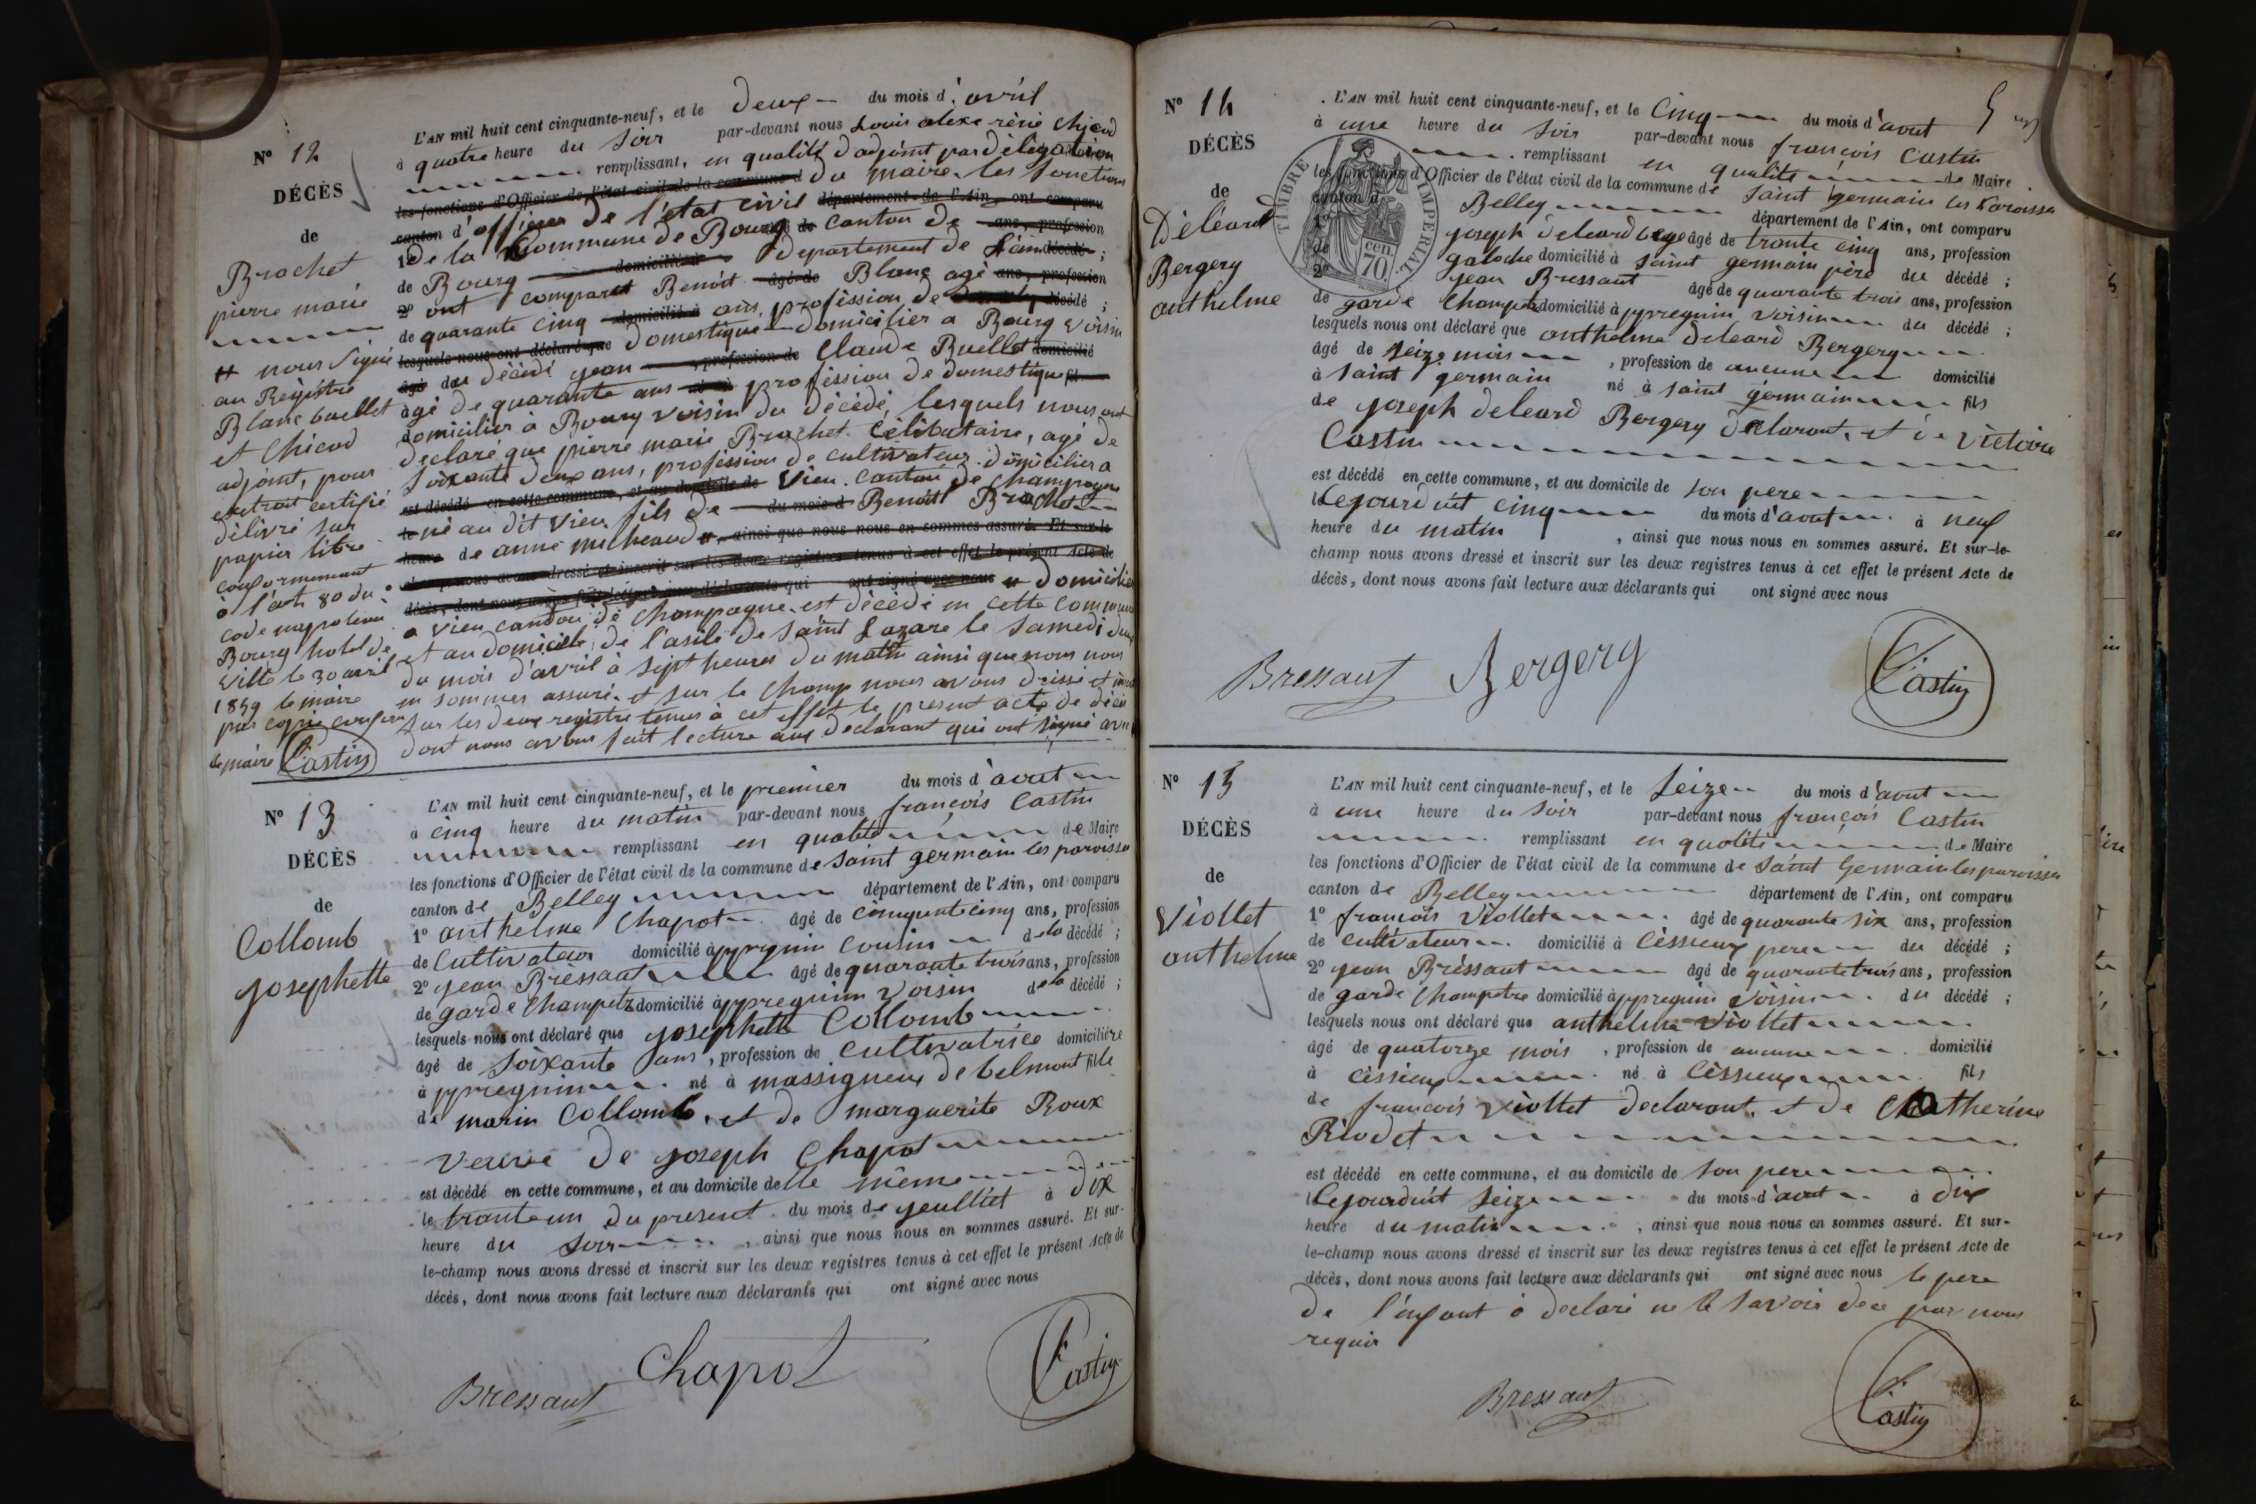 N° 12
DÉCÈS
de
Brachet
pierre marie
nous signé
au Régistre
Blanc buellet
et Chicod
adjoint, pour
extrait certifié
délivré sur
papier libre
conformément
à l'art. 80 du
code napoléon
Bourg hotel de
ville le 30 avril
1859 le maire
pour copie conforme
le maire Castin
L'AN mil huit cent cinquante-neuf, et le deux du mois d'avril
à quatre heure du soir par-devant nous Louis alexe réné Chicod
remplissant, en qualité d'adjoint par délégation
les fonctions d'Officier de l'état civil de la commune d du maire les fonctions
canton d'officier de l'état civil département de l'Ain, ont comparu
1° de la Commune de Bourg canton de ans, profession
de Bourg domicilié à département de l'ain décédé ;
2° ont comparut Benoit âgé de Blanc agé ans, profession
de quarante cinq domicilié à ans, profession de décédé ;
lesquels nous ont déclaré que domestique domicilier a Bourg voisin
âgé du décédé jean profession de Claude Buellet domicilié
agé de quarante ans né à profession de domestique fil
domicilier à Bourg voisin du décédé, lesquels nous ont
declaré que pierre marie Brachet Célibataire, agé de
soixante deux ans, profession de cultivateur domicilier a
est décédé en cette commune, et au domicile de Vieu. Canton de Champagne
le né au dit Vieu fils de du mois d Benoit Brachet
heure de anne micheaud , ainsi que nous nous en sommes assuré. Et sur-le
champ nous avons dressé et inscrit sur les deux registres tenus à cet effet le présent Acte de
décès, dont nous avons fait lecture aux déclarants qui ont signé avec nous domicilié
a Vieu canton de Champagne est décédé en cette commune
et au domicile de l'asile de Saint Lazare le samedi deux
du mois d'avril à sept heures du matin ainsi que nous nous
en sommes assuré. et sur le champ nous avons dressé et inscrit
sur les deux registre tenus à cet effet le présent acte de décès
dont nous avons fait lecture aux declarant qui ont signé avec
N° 13
DÉCÈS
de
Collomb
josephette
L'AN mil huit cent cinquante-neuf, et le premier du mois d'avout
à cinq heure du matin par-devant nous françois Castin
remplissant en qualité de Maire
les fonctions d'Officier de l'état civil de la commune de saint germain les paroisse
canton de Belley département de l'Ain, ont comparu
1° anthelme Chapot âgé de cinquante cinq ans, profession
de Cultivateur domicilié à yppregnin cousin de la décédé ;
2° jean Bressaut âgé de quarante trois ans, profession
de garde Champetre domicilié à yppregnin voisin de la décédé ;
lesquels nous ont déclaré que josephette Collomb
âgé de soixante ans, profession de cultivatrice domicilière
à yppregnin né à massignieux de belmont fille
de marin Collomb. et de marguerite Roux
veuve de joseph Chapot
est décédé en cette commune, et au domicile de lle même
le trante un du present du mois de jeulliet à dix
heure du soir , ainsi que nous nous en sommes assuré. Et sur-
le-champ nous avons dressé et inscrit sur les deux registres tenus à cet effet le présent Acte de
décès, dont nous avons fait lecture aux déclarants qui ont signé avec nous
Bressaut Chapot Castin
N° 14
DÉCÈS
de
Déléard
Bergery
anthelme
5
TIMBRE IMPERIAL
70 cen
L'AN mil huit cent cinquante-neuf, et le Cinq du mois d'avout
à une heure du soir par-devant nous françois Castin
remplissant en qualité de Maire
les fonctions d'Officier de l'état civil de la commune de saint germain les Paroisse
canton d Belley département de l'Ain, ont comparu
1° joseph deleard âgé de trante cinq ans, profession
de galoche domicilié à saint germain père du décédé ;
2° jean Bressaut âgé de quarante trois ans, profession
de garde Champetre domicilié à yppregnin voisin du décédé ;
lesquels nous ont déclaré que anthelme deleard Bergery
âgé de seize mois , profession de aucune domicilié
à saint germain né à saint germain fils
de joseph deleard Bergery declarant, et de Victoire
Castin
est décédé en cette commune, et au domicile de son pere
le jourduit cinq du mois d'avout à neuf
heure du matin , ainsi que nous nous en sommes assuré. Et sur-le-
champ nous avons dressé et inscrit sur les deux registres tenus à cet effet le présent Acte de
décès, dont nous avons fait lecture aux déclarants qui ont signé avec nous
Bressaut Bergery Castin
N° 15
DÉCÈS
de
Viollet
anthelme
L'AN mil huit cent cinquante-neuf, et le seize du mois d'avout
à une heure du soir par-devant nous françois Castin
remplissant en qualité de Maire
les fonctions d'Officier de l'état civil de la commune de saint Germain les paroisse
canton de Belley département de l'Ain, ont comparu
1° françois Viollet âgé de quarante six ans, profession
de cultivateur domicilié à Cèssieux pere du décédé ;
2° jean Bréssaut âgé de quarante trois ans, profession
de garde Champetre domicilié à yppregnin voisin du décédé ;
lesquels nous ont déclaré que anthelme Viollet
âgé de quatorze mois , profession de aucune domicilié
à cèssieux né à Cèssieux fils
de françois Viollet declarant, et de Chatherine
Riodet
est décédé en cette commune, et au domicile de son pere
le jourduit seize du mois d'avout à dix
heure du matin , ainsi que nous nous en sommes assuré. Et sur-
le-champ nous avons dressé et inscrit sur les deux registres tenus à cet effet le présent Acte de
décès, dont nous avons fait lecture aux déclarants qui ont signé avec nous le pere
de l'enfant à declaré ne le savoir de ce par nous
requis
Bressaut Castin